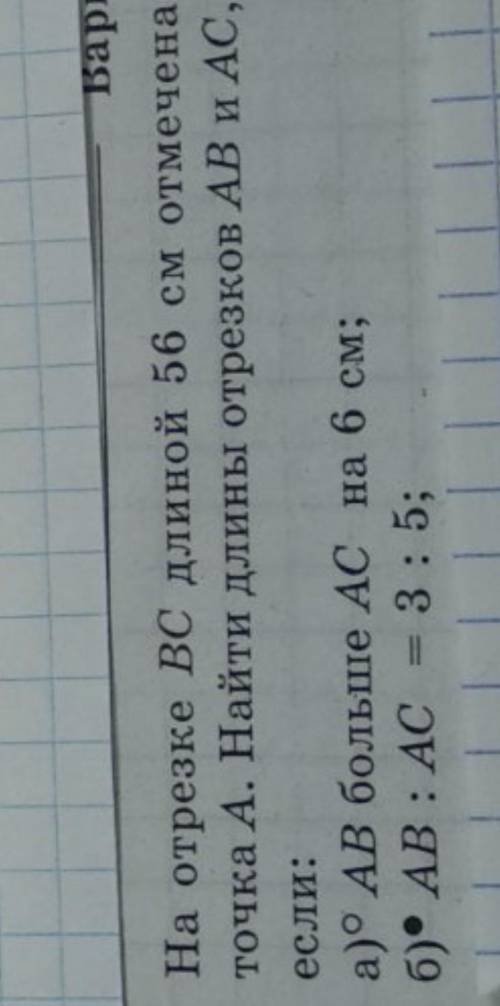 На отрезке BC длиной 56 см отмечена
точка A. Найти длины отрезков AB и AC,
если:
а)° AB больше AC на 6 см;
б)• AB : AC = 3 : 5;